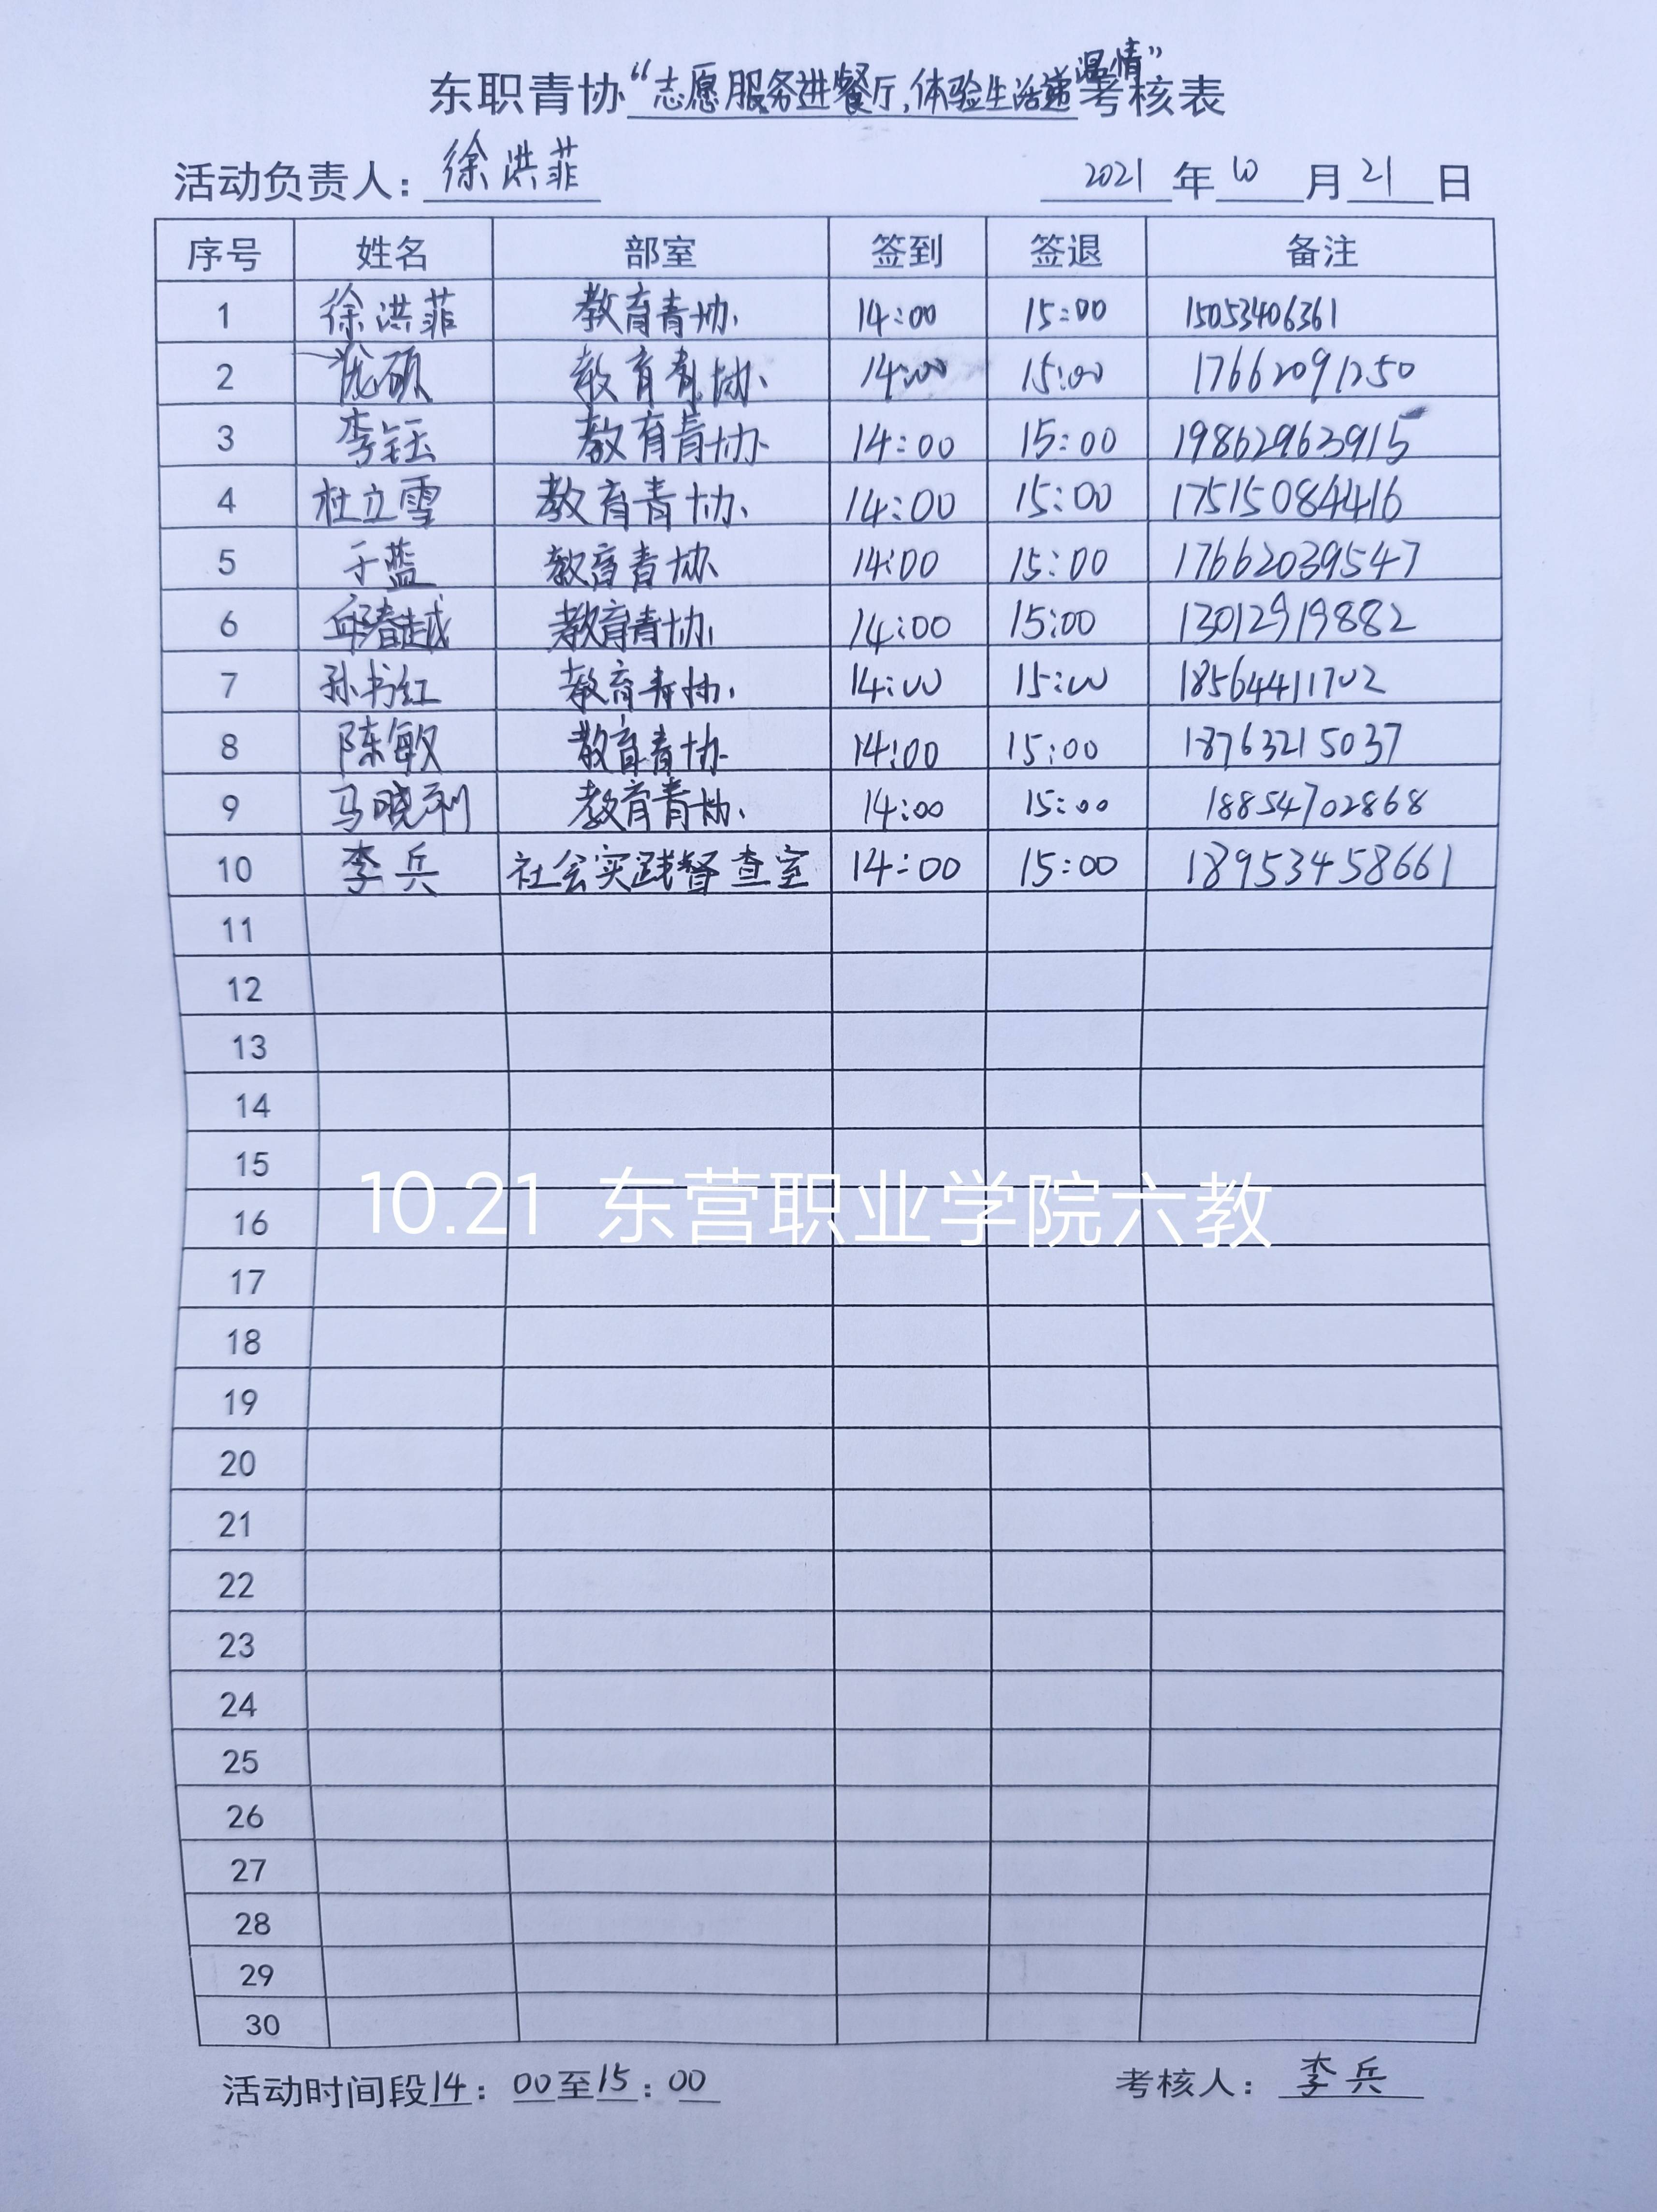 东职青协“志愿服务进餐厅,体验生活递温情”考核表
活动负责人: 徐洪菲 2021年10月21日
序号 姓名 部室 签到 签退 备注
1 徐洪菲 教育青协 14:00 15:00 15053406361
2 硕 教育青协 14:00 15:00 17662091250
3 李钰 教育青协 14:00 15:00 19862963915
4 杜立雪 教育青协 14:00 15:00 17515084416
5 于蓝 教育青协 14:00 15:00 17662039547
6 邱春越 教育青协 14:00 15:00 13012919882
7 孙书红 教育青协 14:00 15:00 18564411702
8 陈敏 教育青协 14:00 15:00 18763215037
9 马晓利 教育青协 14:00 15:00 18854702868
10 李兵 社会实践督查室 14:00 15:00 18953458661
11
12
13
14
15
10.21 东营职业学院六教
16
17
18
19
20
21
22
23
24
25
26
27
28
29
30
活动时间段14:00至15:00 考核人: 李兵